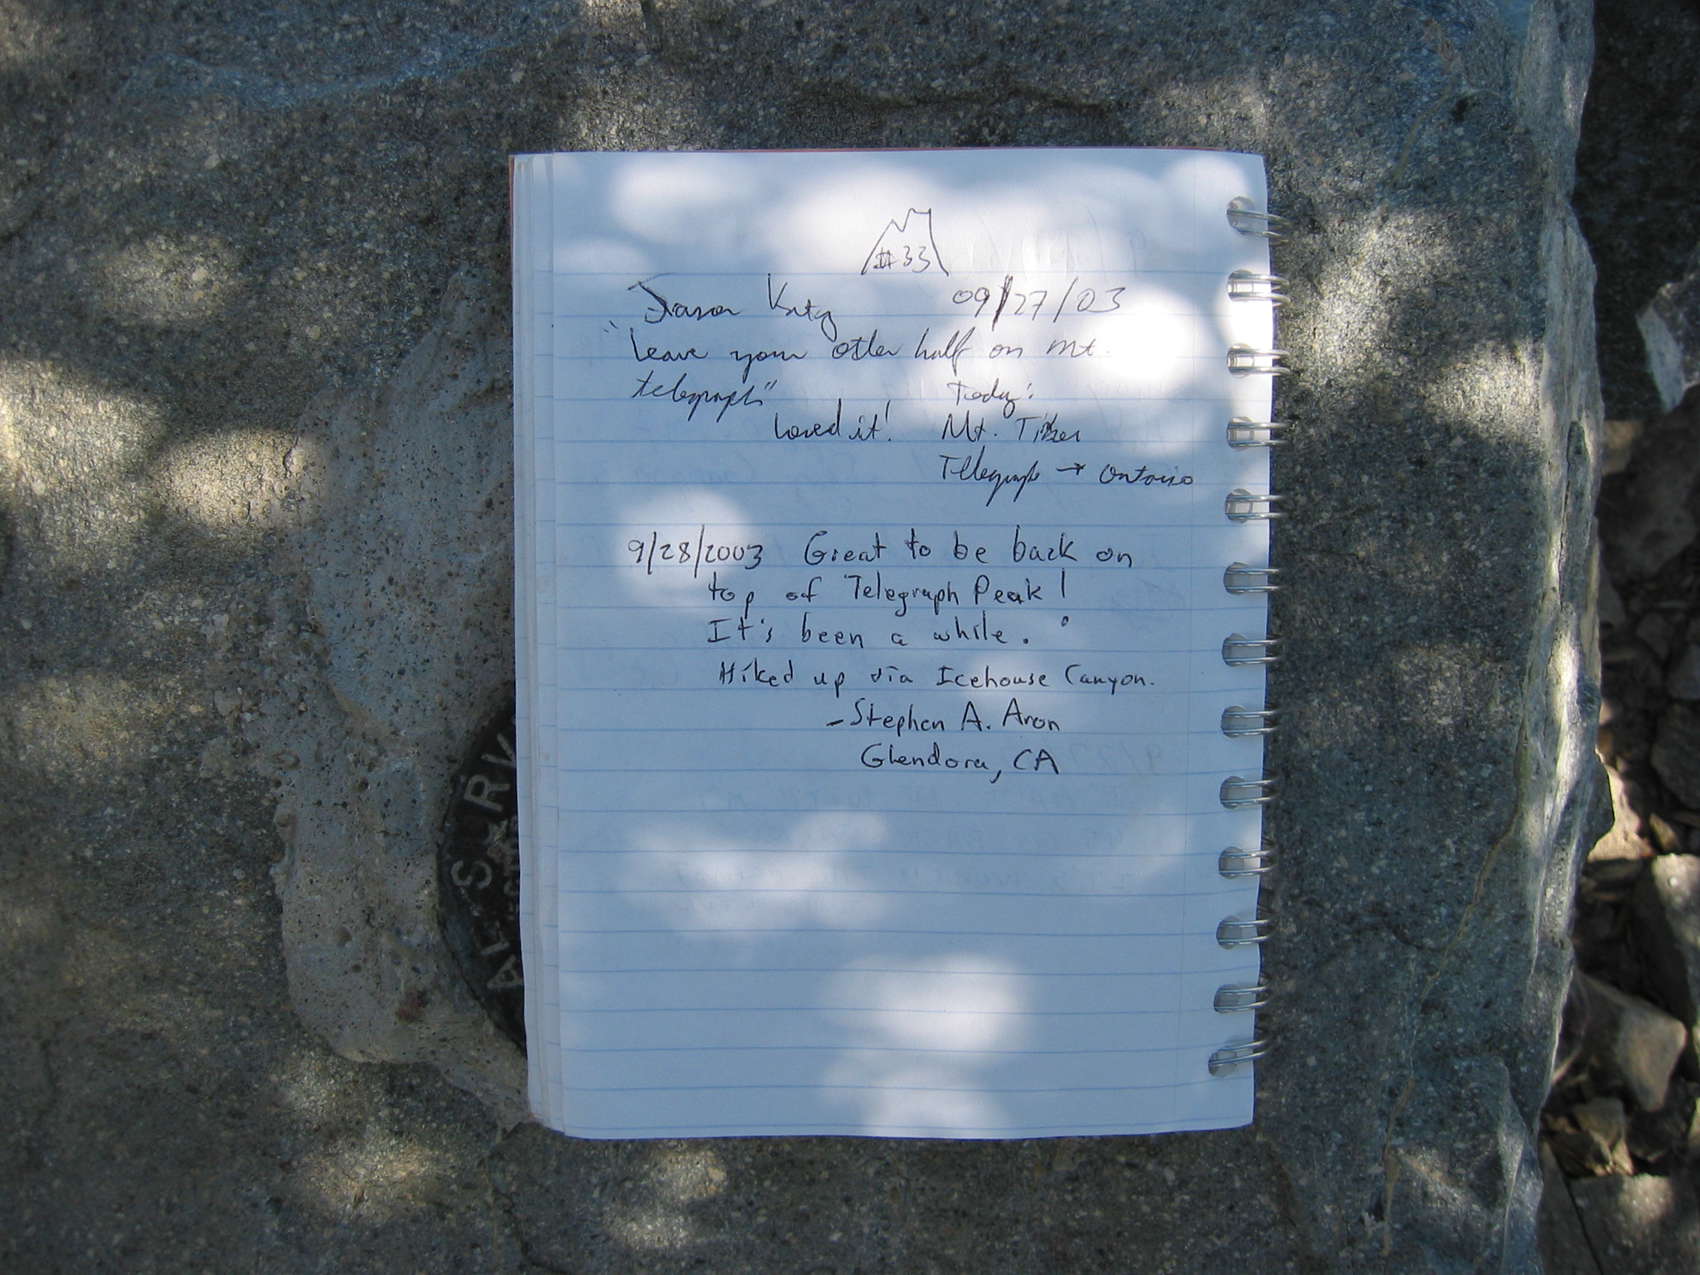 #33
Jason Katz 09/27/03
"Leave your other half on Mt.
telegraph" Today:
Loved it! Mt.
Telegraph → Ontario
9/28/2003 Great to be back on
top of Telegraph Peak!
It's been a while.
Hiked up via Icehouse Canyon.
- Stephen A. Aron
Glendora, CA
AL SURV